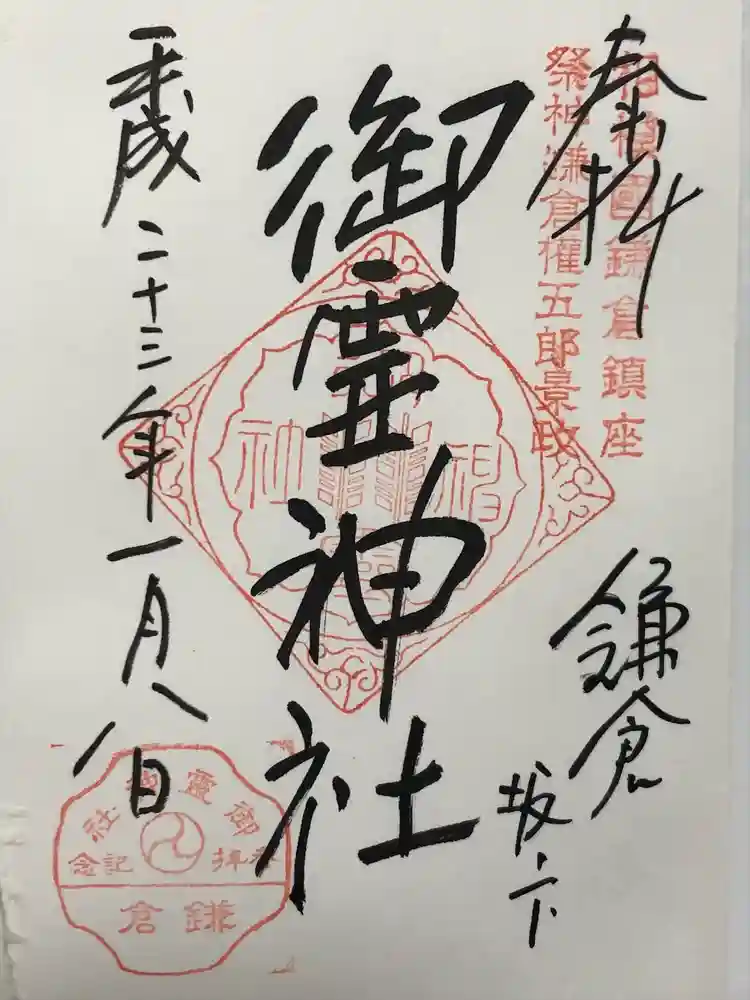 奉拝
相模國鎌倉鎮座
祭神鎌倉権五郎景政
鎌倉
坂ノ下
御霊神社
平成二十三年一月八日
神社
御靈神社
参拝記念
鎌倉